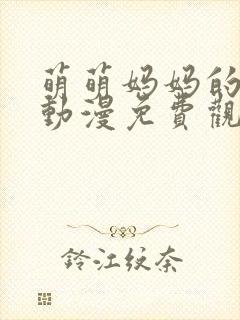 萌萌妈妈的
動漫免費觀
鈴江紋奈